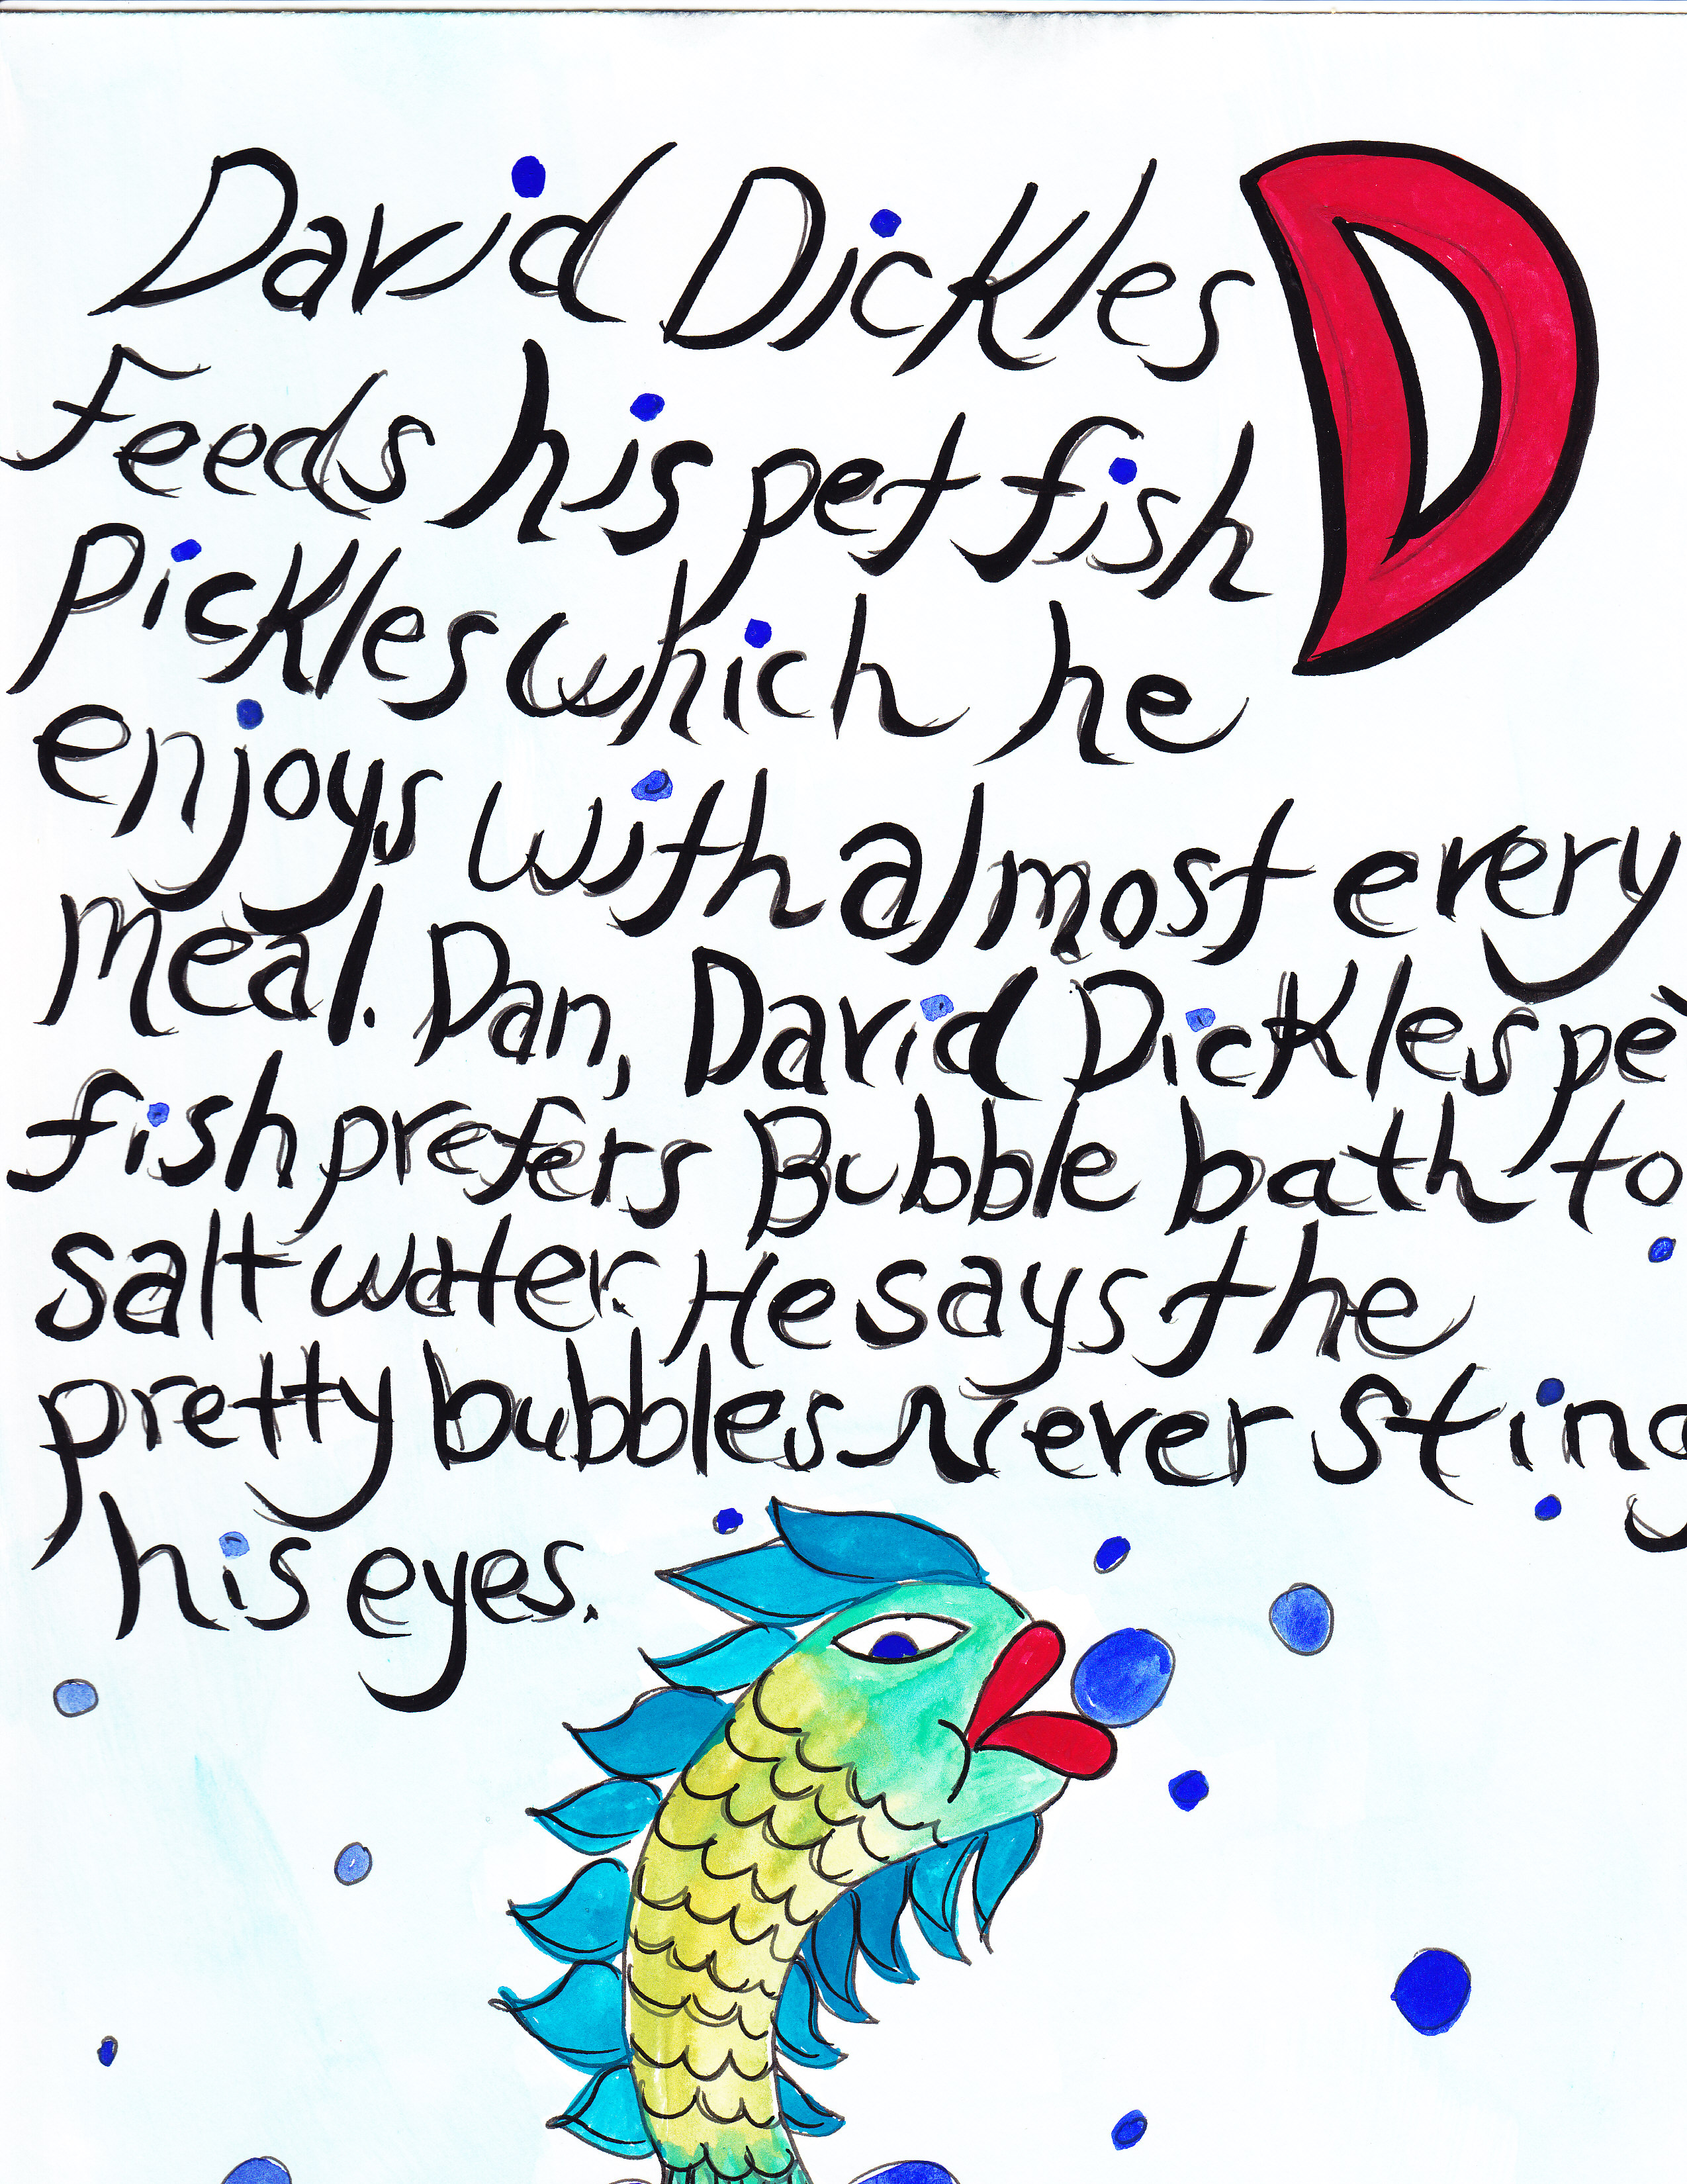 David Dickles D
Feeds his pet fish
Pickles which he
enjoys with almost every
meal. Dan, David Dickles pet
fish prefers Bubble bath to
salt water. He says the
pretty bubbles Never sting
his eyes.